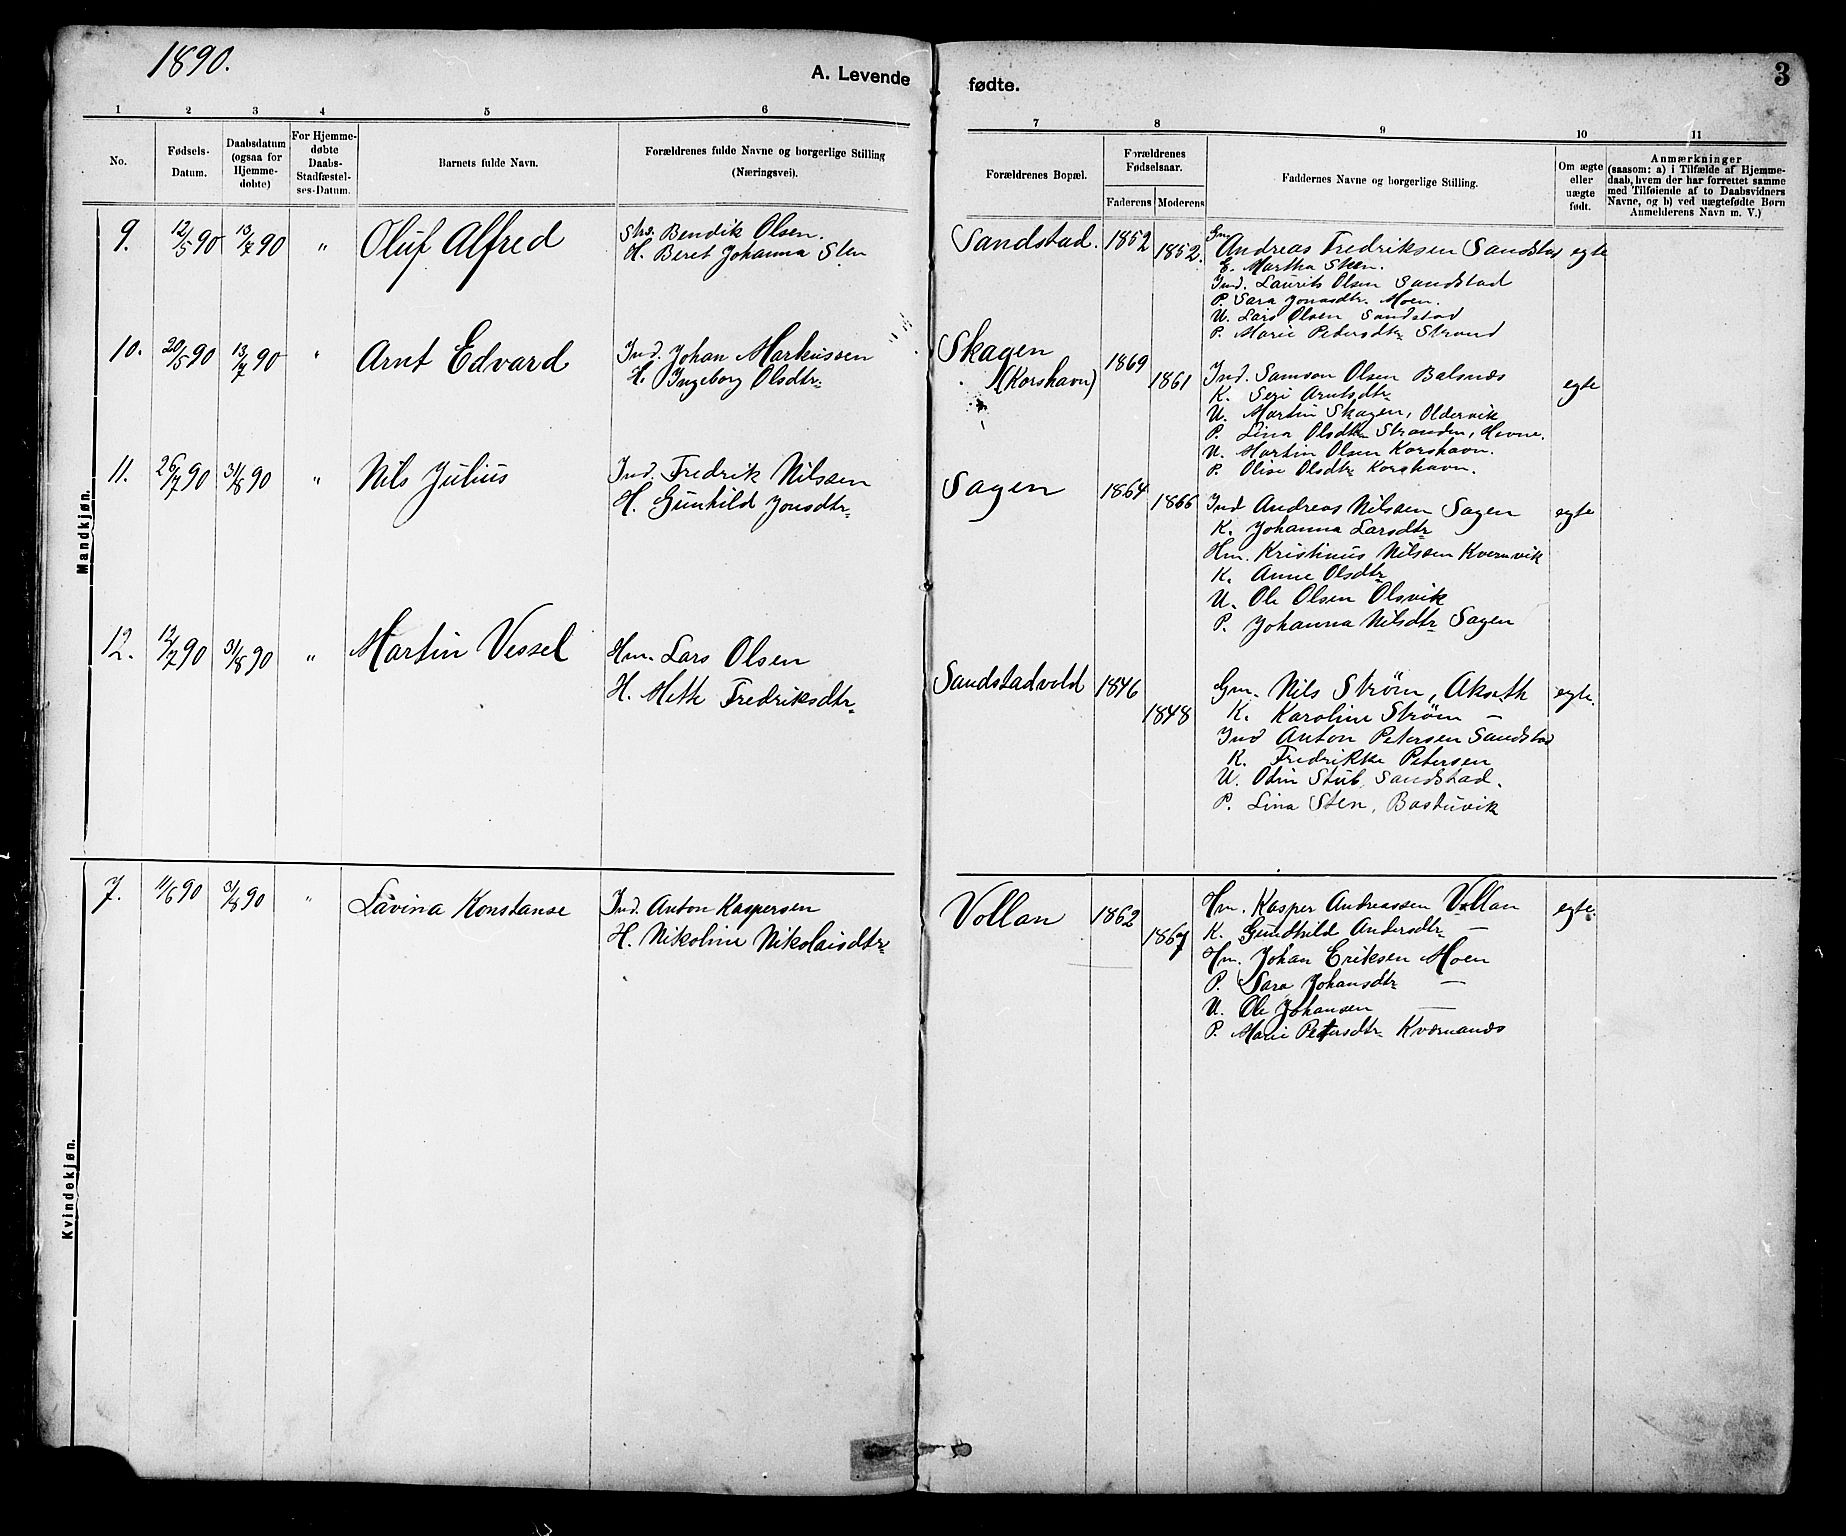 1890.
A. Levende fødte.
3
1 2 3 4 5 6 7 8 9 10 11
No.
Fødsels-
Datum.
Daabsdatum
(ogsaa for
Hjemme-
døbte)
For Hjemme-
døbte
Daabs-
Stadfæstel-
ses-Datum.
Barnets fulde Navn.
Forældrenes fulde Navne og borgerlige Stilling
(Næringsvei).
Forældrenes Bopæl.
Forældrenes
Fødselsaar.
Faderens Moderens
Faddernes Navne og borgerlige Stilling.
Om ægte
eller
uægte
født.
Anmærkninger
(saasom: a) i Tilfælde af Hjemme-
daab, hvem der har forrettet samme
med Tilføiende af to Daabsvidners
Navne, og b) ved uægtefødte Børn
Anmelderens Navn m. V.)
Mandkjøn.
9. 12/5 90 13/7 90 " Oluf Alfred
Strs. Bendik Olsen.
H. Beret Johanna Sten
Sandstad. 1852 1852.
Gm Andreas Fredriksen Sandstad egte
E. Martha Sten.
Ind. Laurits Olsen Sandstad
P. Sara Jonasdtr. Moen.
U. Lars Olsen Sandstad
P. Marie Pedersdtr Strand
10. 20/5 90 13/7 90 " Arnt Edvard
Ind. Johan Markussen
H. Ingeborg Olsdtr.
Skagen
(Korshavn) 1869 1861
Ind. Samson Olsen Balsnes egte
K. Seri Arntsdtr
U. Martin Skagen, Oldervik
P. Lina Olsdtr Stranden, Hevne.
U. Martin Olsen Korshavn.
P. Olise Olsdtr Korshavn.
11. 26/7 90 31/8 90 " Nils Julius
Ind. Fredrik Nilssen
H. Gunhild Jonsdtr.
Sagen 1864 1866
Ind Andreas Nilssen Sagen egte
K. Johanna Larsdtr
Hm. Kristinus Nilssen Kvernvik
K. Anne Olsdtr
U. Ole Olsen Olsvik
P. Johanna Nilsdtr Sagen
12. 12/7 90 31/8 90 " Martin Vessel
Hm. Lars Olsen
H. Meth Fredriksdtr.
Sandstadvold 1846 1848
Gm. Nils Strøm, Akseth egte.
K. Karoline Strøm —
Ind Anton Petersen Sandstad
K. Fredrikke Petersen
U. Odin Stub, Sandstad.
P. Lina Sten, Bastuvik
Kvindekjøn.
7. 11/6 90 31/8 90 " Lavina Konstanse
Ind. Anton Kaspersen
H. Nikoline Nikolaisdtr.
Vollan 1862 1867
Hm. Kasper Andreassen Vollan egte.
K. Gundhild Andersdtr —
Hm. Johan Eriksen Moen
P. Sara Johansdtr —
U. Ole Johansen —
P. Marie Petersdtr. Kværnanes